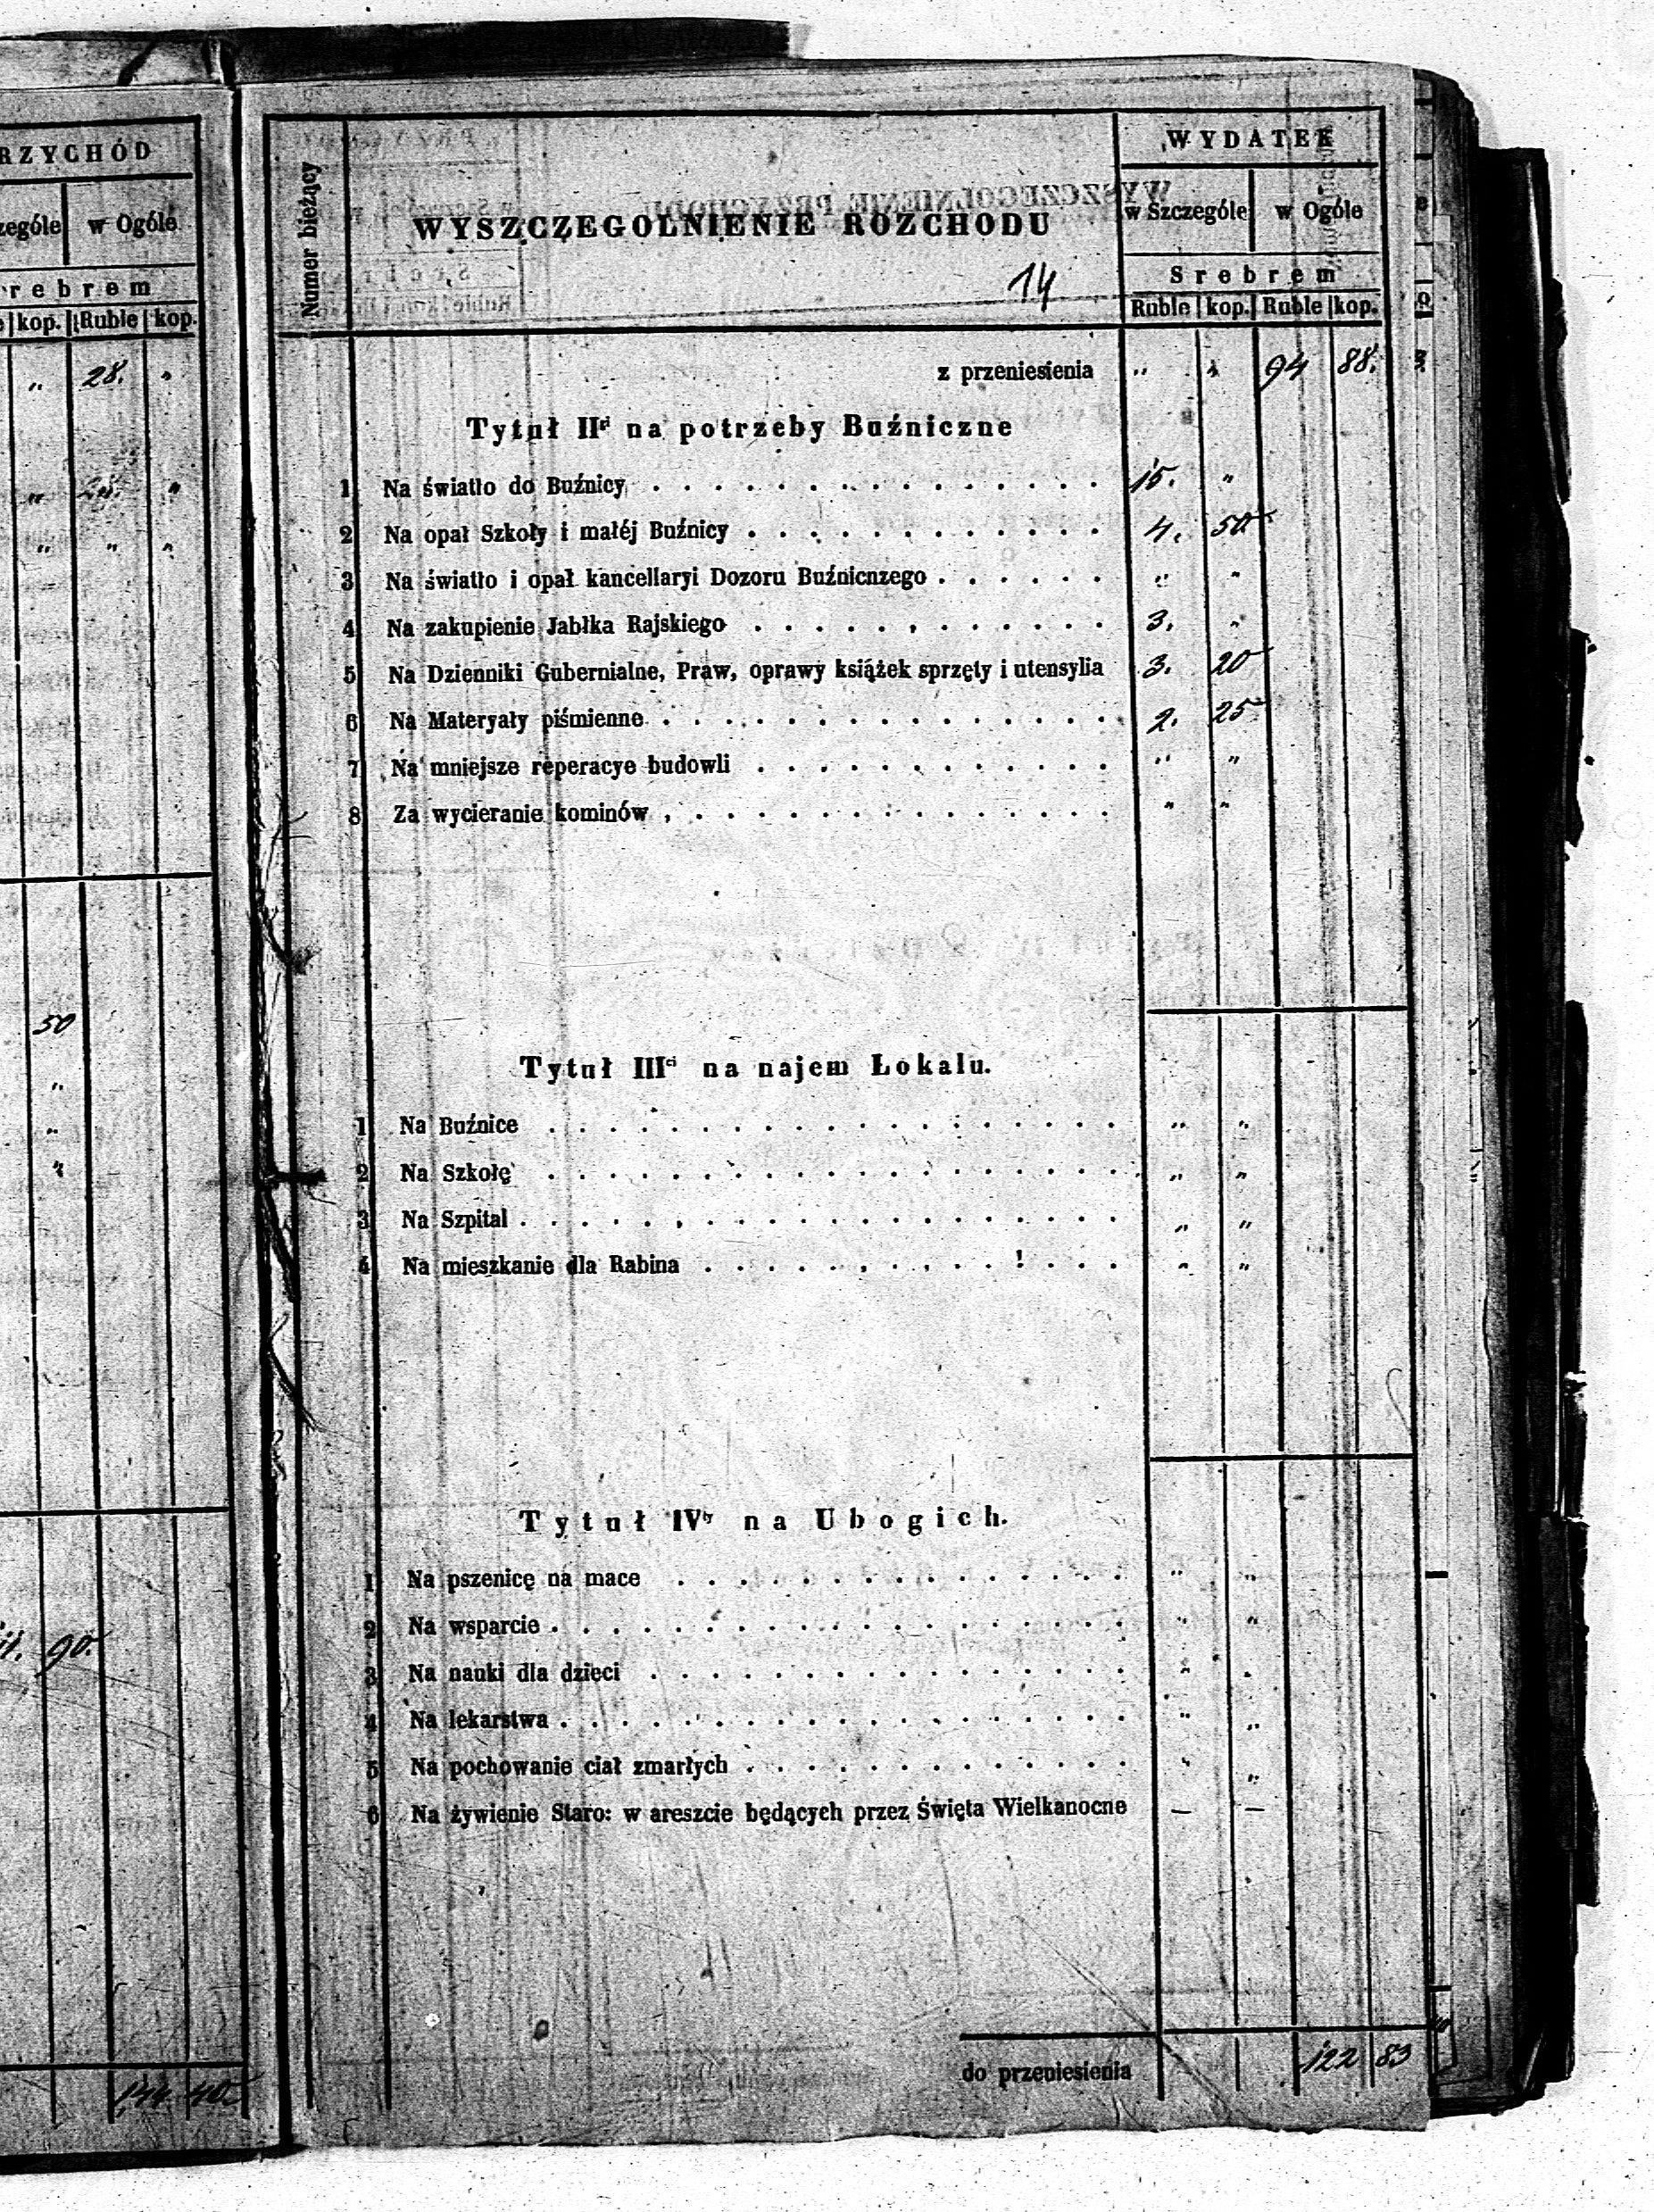 RZYCHÓD
zególe w Ogóle
rebrem
kop. Ruble kop.
„ 28. „
„ 28. „
„ „ „
50
„
„
„
90.
144 40
Numer bieżący
WYSZCZEGOLNIENIE ROZCHODU
14
WYDATEK
w Szczególe w Ogóle
Srebrem
Ruble kop. Ruble kop.
z przeniesienia „ „ 94 88.
Tytuł IIgi na potrzeby Buźniczne
1 Na światło do Buźnicy . . . . . . . . . . . . . . . 15. „
2 Na opał Szkoły i małéj Buźnicy . . . . . . . . . . . . 4. 50
3 Na światło i opał kancellaryi Dozoru Buźnicnzego . . . . . . „ „
4 Na zakupienie Jabłka Rajskiego . . . . . . . . . . . . 3. „
5 Na Dzienniki Gubernialne, Praw, oprawy książek sprzęty i utensylia 3. 20
6 Na Materyały piśmienne . . . . . . . . . . . . . . . 2. 25
7 Na mniejsze reperacye budowli . . . . . . . . . . . . „ „
8 Za wycieranie kominów . . . . . . . . . . . . . . . „ „
Tytuł IIIci na najem Łokalu.
1 Na Buźnice . . . . . . . . . . . . . . . . . . . „ „
2 Na Szkołę . . . . . . . . . . . . . . . . . . . . „ „
3 Na Szpital . . . . . . . . . . . . . . . . . . . . „ „
4 Na mieszkanie dla Rabina . . . . . . . . . . . . . . „ „
Tytuł IVty na Ubogich.
1 Na pszenicę na mace . . . . . . . . . . . . . . . „ „
2 Na wsparcie . . . . . . . . . . . . . . . . . . . „ „
3 Na nauki dla dzięci . . . . . . . . . . . . . . . . „ „
4 Na lekarstwa . . . . . . . . . . . . . . . . . . . „ „
5 Na pochowanie ciał zmarłych . . . . . . . . . . . . . „ „
6 Na żywienie Staro: w areszcie będących przez Święta Wielkanocne — —
do przeniesienia 122 83